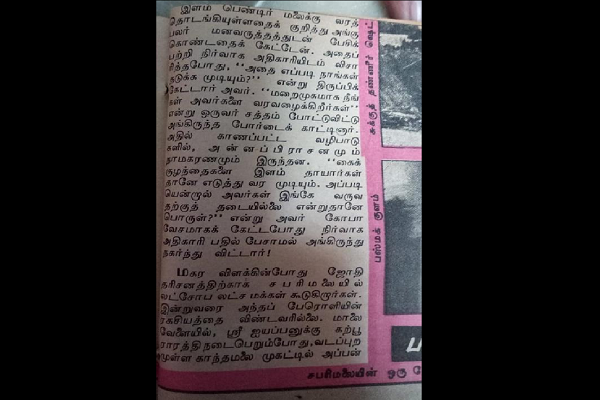 இளம் பெண்டிர் மலைக்கு வரத்
தொடங்கியுள்ளதைக் குறித்து அங்கு
பலர் மனவருத்தத்துடன் பேசிக்
கொண்டதைக் கேட்டேன். அதைப்
பற்றி நிர்வாக அதிகாரியிடம் விசா
ரித்தபோது, "அதை எப்படி நாங்கள்
தடுக்க முடியும்?" என்று திருப்பிக்
கேட்டார் அவர். "மறைமுகமாக நீங்
கள் அவர்களை வரவழைக்கிறீர்கள்"
என்று ஒருவர் சத்தம் போட்டுவிட்டு
அங்கிருந்த போர்டைக் காட்டினார்.
அதில் காணப்பட்ட வழிபாடு
களில், அன்னப்பிராசனமும்
நாமகரணமும் இருந்தன. "கைக்
குழந்தைகளை இளம் தாயார்கள்
தானே எடுத்து வர முடியும். அப்படி
யென்றால் அவர்கள் இங்கே வருவ
தற்குத் தடையில்லை என்றுதானே
பொருள்?" என்று அவர் கோபா
வேசமாகக் கேட்டபோது நிர்வாக
அதிகாரி பதில் பேசாமல் அங்கிருந்து
நகர்ந்து விட்டார்!
மகர விளக்கின்போது ஜோதி
தரிசனத்திற்காக சபரிமலையில்
லட்சோப லட்ச மக்கள் கூடுகிறார்கள்.
இன்றுவரை அந்தப் பேரொளியின்
ரகசியத்தை விண்டவரில்லை. மாலை
வேளையில், ஸ்ரீ ஐயப்பனுக்கு கற்பூ
ராரத்தி நடைபெறும்போது, வடப்புற
முள்ள காந்தமலை முகட்டில் அப்பன்
சுக்குத் தண்ணீர் ஷெட்
பஸ்மக் குளம்
சபரிமலையின் ஒரு